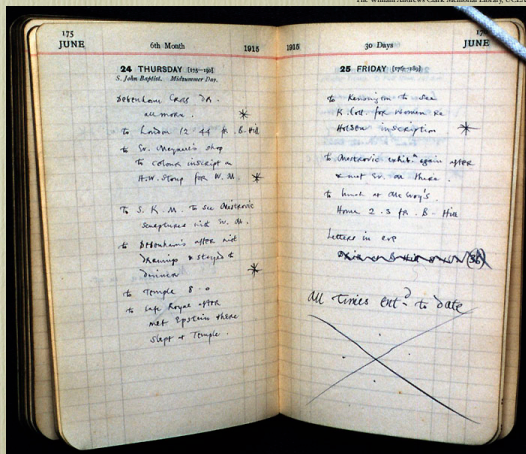 The William Andrews Clark Memorial Library, UCLA
175
JUNE
6th Month
1915
24 THURSDAY [175—190]
S. John Baptist. Midsummer Day.
Debenham Cross Dr.
all morn.
to London 12.44 fr. B. Hill
to Ev. Meynell's shop
to colour inscript n
H.W. Stone for W.M.
to S. K. M. to see Mestrovic
sculptures with W. M.
to Debenham's after with
drawings & stayed to
dinner
to Temple 8.0
to Cafe Royal after
met Epstein there
slept at Temple.
1915
30 Days
JUNE
25 FRIDAY [176—189]
to Kensington to see
K. Cott. for Women re
inscription
to Mestrovic exhib.n again after
& met Ev. M there.
to lunch at McCoy's.
Home 2.3 fr. B. Hill
Letters in eve
(36)
All times ent.d to date